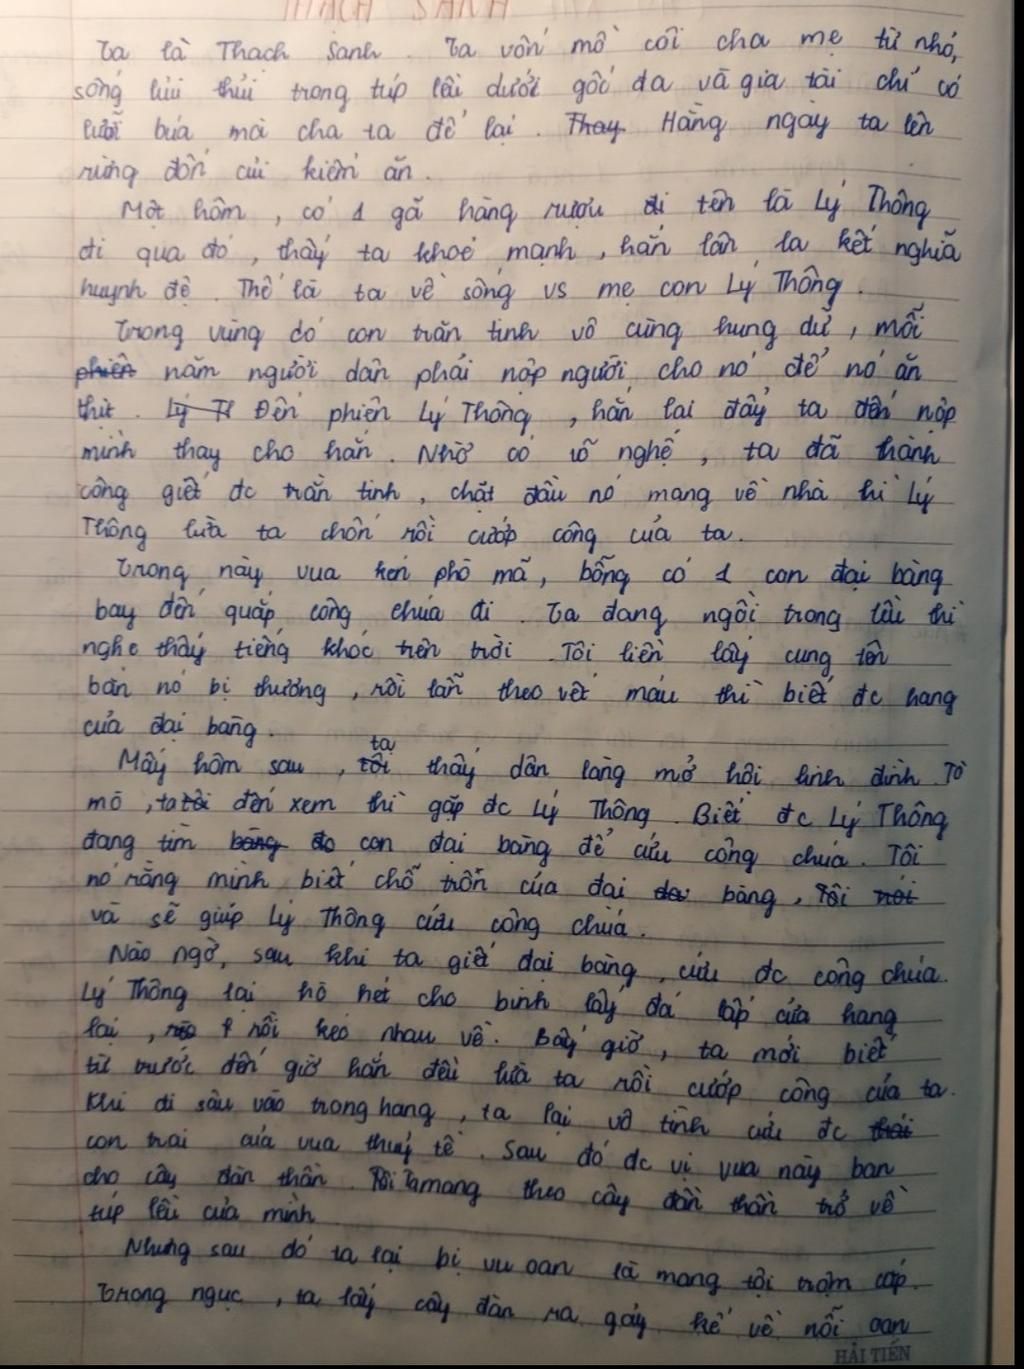 THẠCH SANH
Ta là Thạch Sanh. Ta vốn mồ côi cha mẹ từ nhỏ,
sống lủi thủi trong túp lều dưới gốc đa và gia tài chỉ có
lưỡi búa mà cha ta để lại. Thay Hằng ngày ta lên
rừng đốn củi kiếm ăn.
Một hôm, có 1 gã hàng rượu đi tên là Lý Thông
đi qua đó, thấy ta khoẻ mạnh, hắn lân la kết nghĩa
huynh đệ. Thế là ta về sống vs mẹ con Lý Thông.
Trong vùng có con trăn tinh vô cùng hung dữ, mỗi
phiên năm người dân phải nộp người cho nó để nó ăn
thịt. Lý T Đến phiên Lý Thông, hắn lại đẩy ta đến nộp
mình thay cho hắn. Nhờ có võ nghệ, ta đã thành
công giết đc trăn tinh, chặt đầu nó mang về nhà thì Lý
Thông lừa ta chốn rồi cướp công của ta.
Trong này vua kén phò mã, bỗng có 1 con đại bàng
bay đến quắp công chúa đi. Ta đang ngồi trong lều thì
nghe thấy tiếng khóc trên trời. Tôi liền lấy cung tên
bắn nó bị thương, rồi lần theo vết máu thì biết đc hang
của đại bàng.
Mấy hôm sau, tôi ta thấy dân làng mở hội linh đình. Tò
mò, ta tôi đến xem thì gặp đc Lý Thông. Biết đc Lý Thông
đang tìm bàng đo con đại bàng để cứu công chúa. Tôi
nó rằng mình biết chỗ trốn của đại bàng, Tôi nói
và sẽ giúp Lý Thông cứu công chúa.
Nào ngờ, sau khi ta giết đại bàng, cứu đc công chúa.
Lý Thông lại hô hét cho binh lấy đá lấp cửa hang
lại, rồi kéo nhau về. Bấy giờ, ta mới biết
từ trước đến giờ hắn đều lừa ta rồi cướp công của ta.
Khi đi sâu vào trong hang, ta lại vô tình cứu đc thái
con trai của vua thuỷ tề. Sau đó đc vị vua này ban
cho cây đàn thần. Tôi Ta mang theo cây đàn thần trở về
túp lều của mình
Nhưng sau đó ta lại bị vu oan là mang tội trộm cắp.
Trong ngục, ta lấy cây đàn ra gảy kể về nỗi oan
HẢI TIẾN